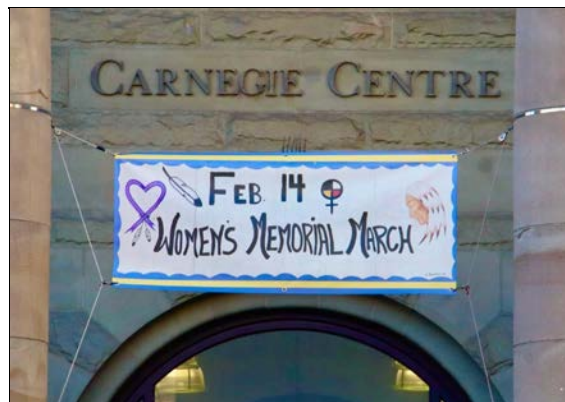 CARNEGIE CENTRE
FEB. 14
WOMEN'S MEMORIAL MARCH